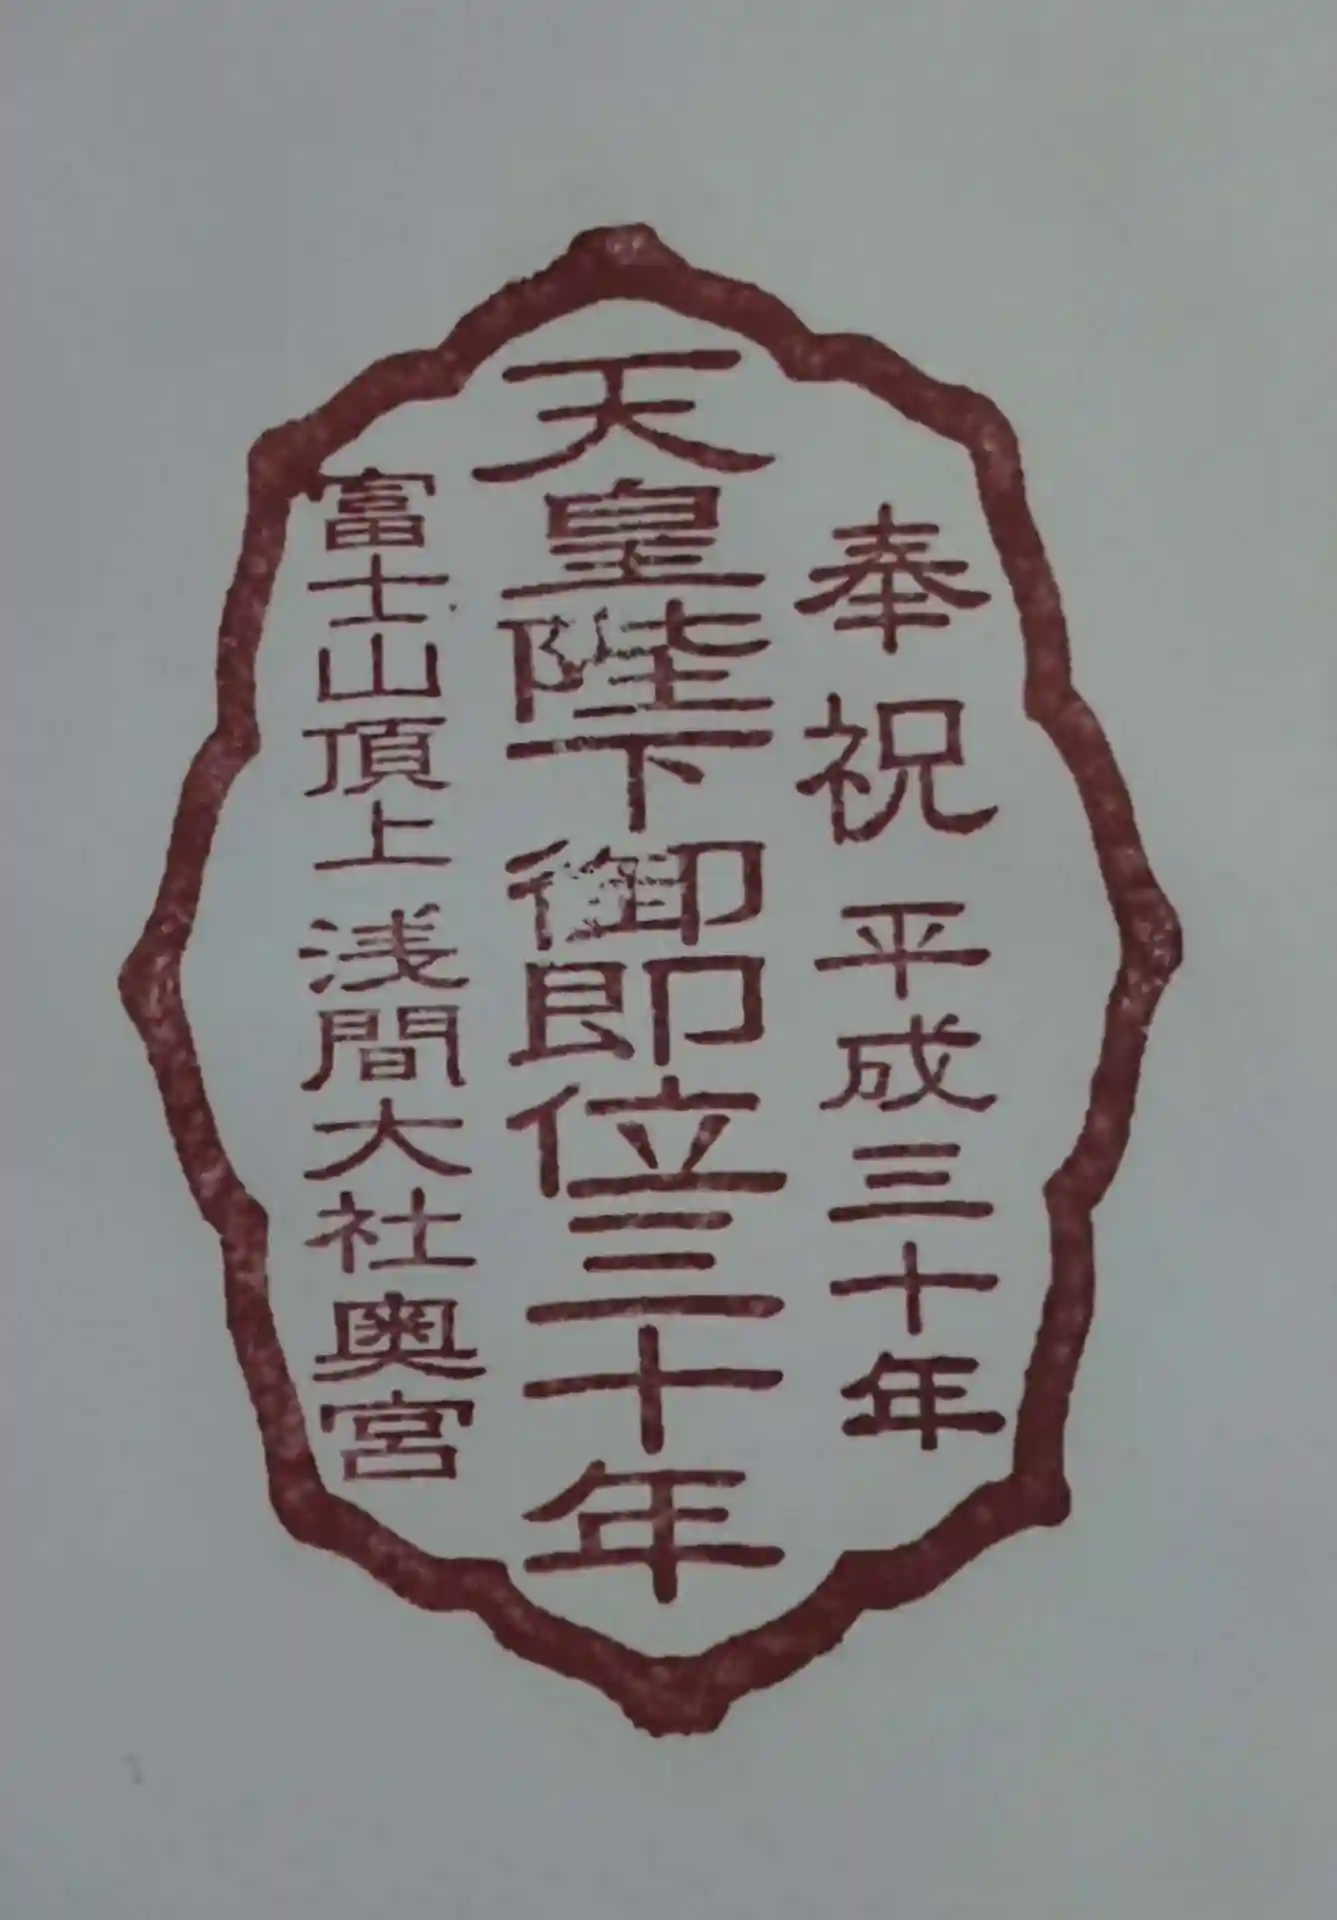 奉祝 平成三十年
天皇陛下御即位三十年
富士山頂上 浅間大社奥宮